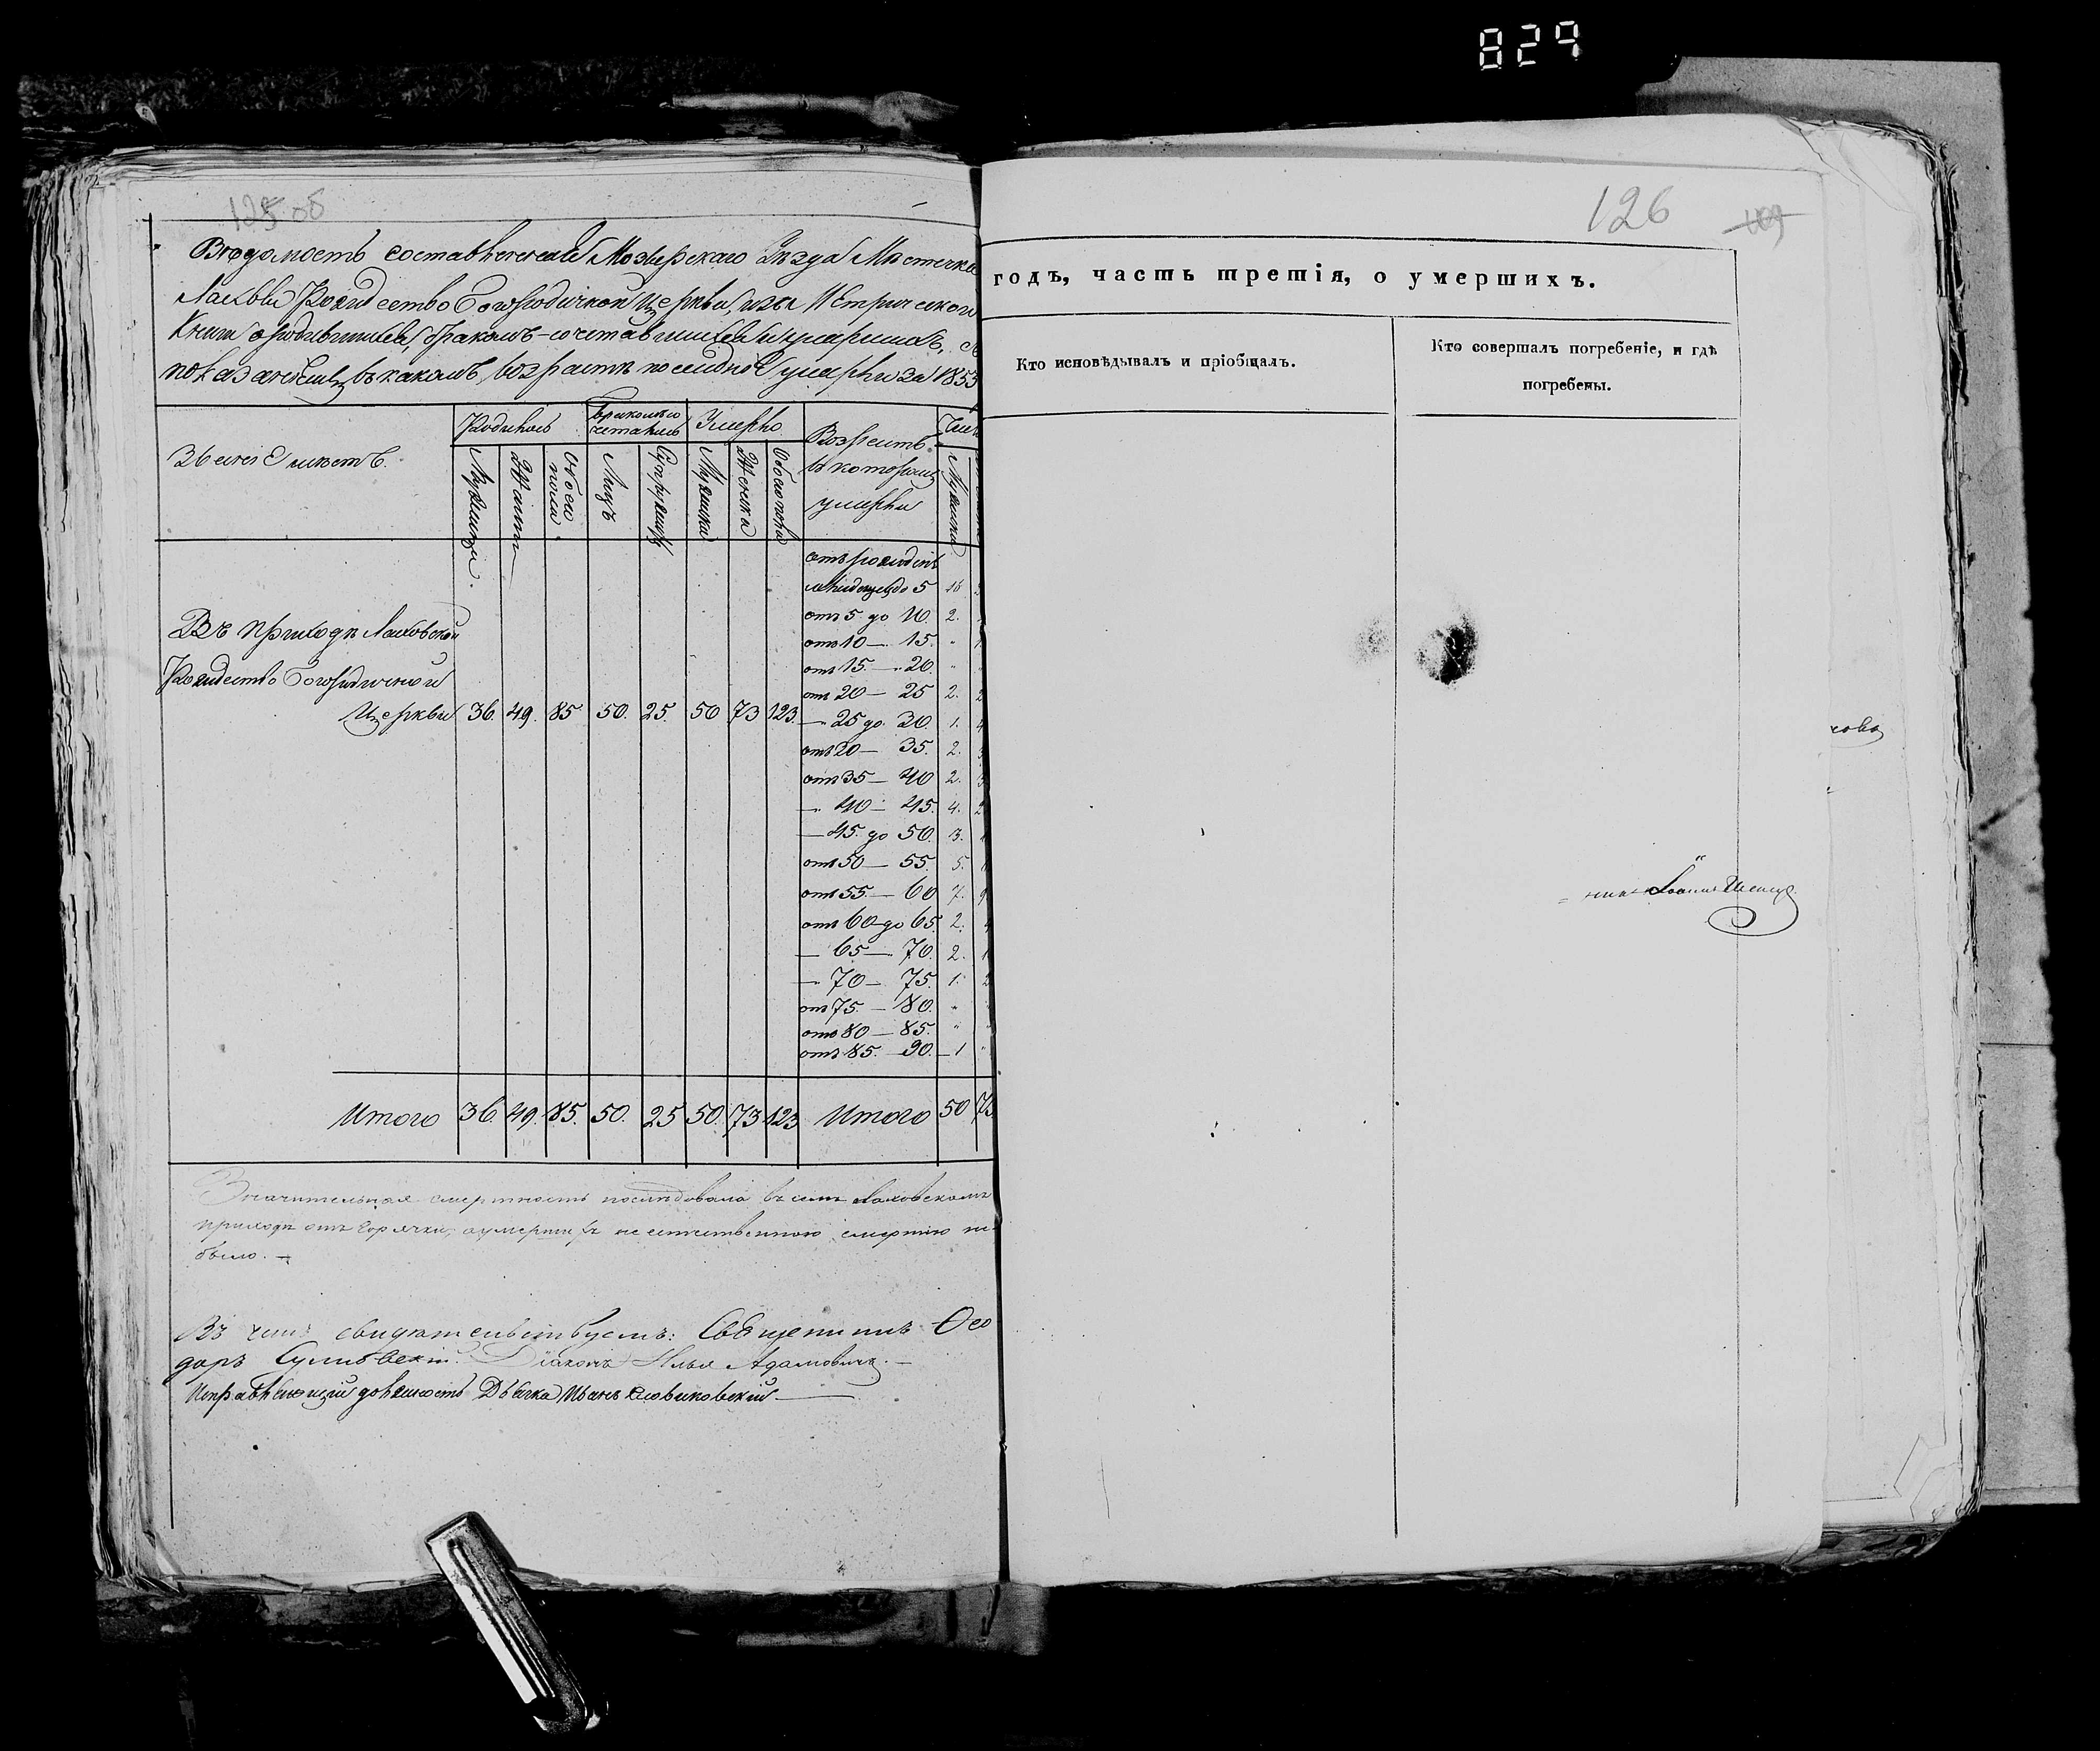 829
125 об
Вѣдомость составленная Мозырскаго Уѣзда Мѣстечка
Лахвы Рождество Богородичной Церкви, изъ Метрической
Книги о родившихся, бракомъ сочетавшихся и умершихъ, съ
показаніемъ въ какомъ возрастѣ последніе умерли за 1853
Званіе мѣстъ.
Родилось
Бракомъ со
четались
Умерло
Возрастъ
въ которомъ
умерли
Число
Мужеска
Женска
Обоего
пола
Лицъ
Супружествъ
Мужеска
Женска
Обоего пола
Мужеска
отъ рожденія
младенцевъ до 5 16
отъ 5 до 10. 2.
отъ 10 — 15. „
отъ 15. — 20. „
отъ 20 — 25 2. 2
— 25 до 30. 1. 4
отъ 30 — 35. 2. 3
отъ 35 — 40 2. 3
— 40 — 45. 4. 2
— 45. до 50. 3.
отъ 50 — 55. 5.
отъ 55. — 60 7. 9
отъ 60 до 65. 2. 4
— 65 — 70. 2. 1
— 70 — 75. 1. 2
отъ 75. — 80. „
отъ 80 — 85. „
отъ 85. — 90. — 1 „
Въ приходѣ Лаховской
Рождество Богородичной
Церкви 36. 49. 85 50. 25. 50 73 123.
Итого 36. 49. 85. 50. 25 50. 73 123 Итого 50 73
Значительная смертность последовала въ семъ Лаховскомъ
приходѣ отъ горячки, а умершихъ не естественною смертію не
было. —
Въ чемъ свидѣтельствуемъ: Священникъ Ѳео
доръ Діаконъ Илья Адамовичъ. —
Исправляющій должность Дьячка Иванъ
126
109
годъ, часть третія, о умершихъ.
Кто исповѣдывалъ и пріобщалъ.
Кто совершалъ погребеніе, и гдѣ
погребены.